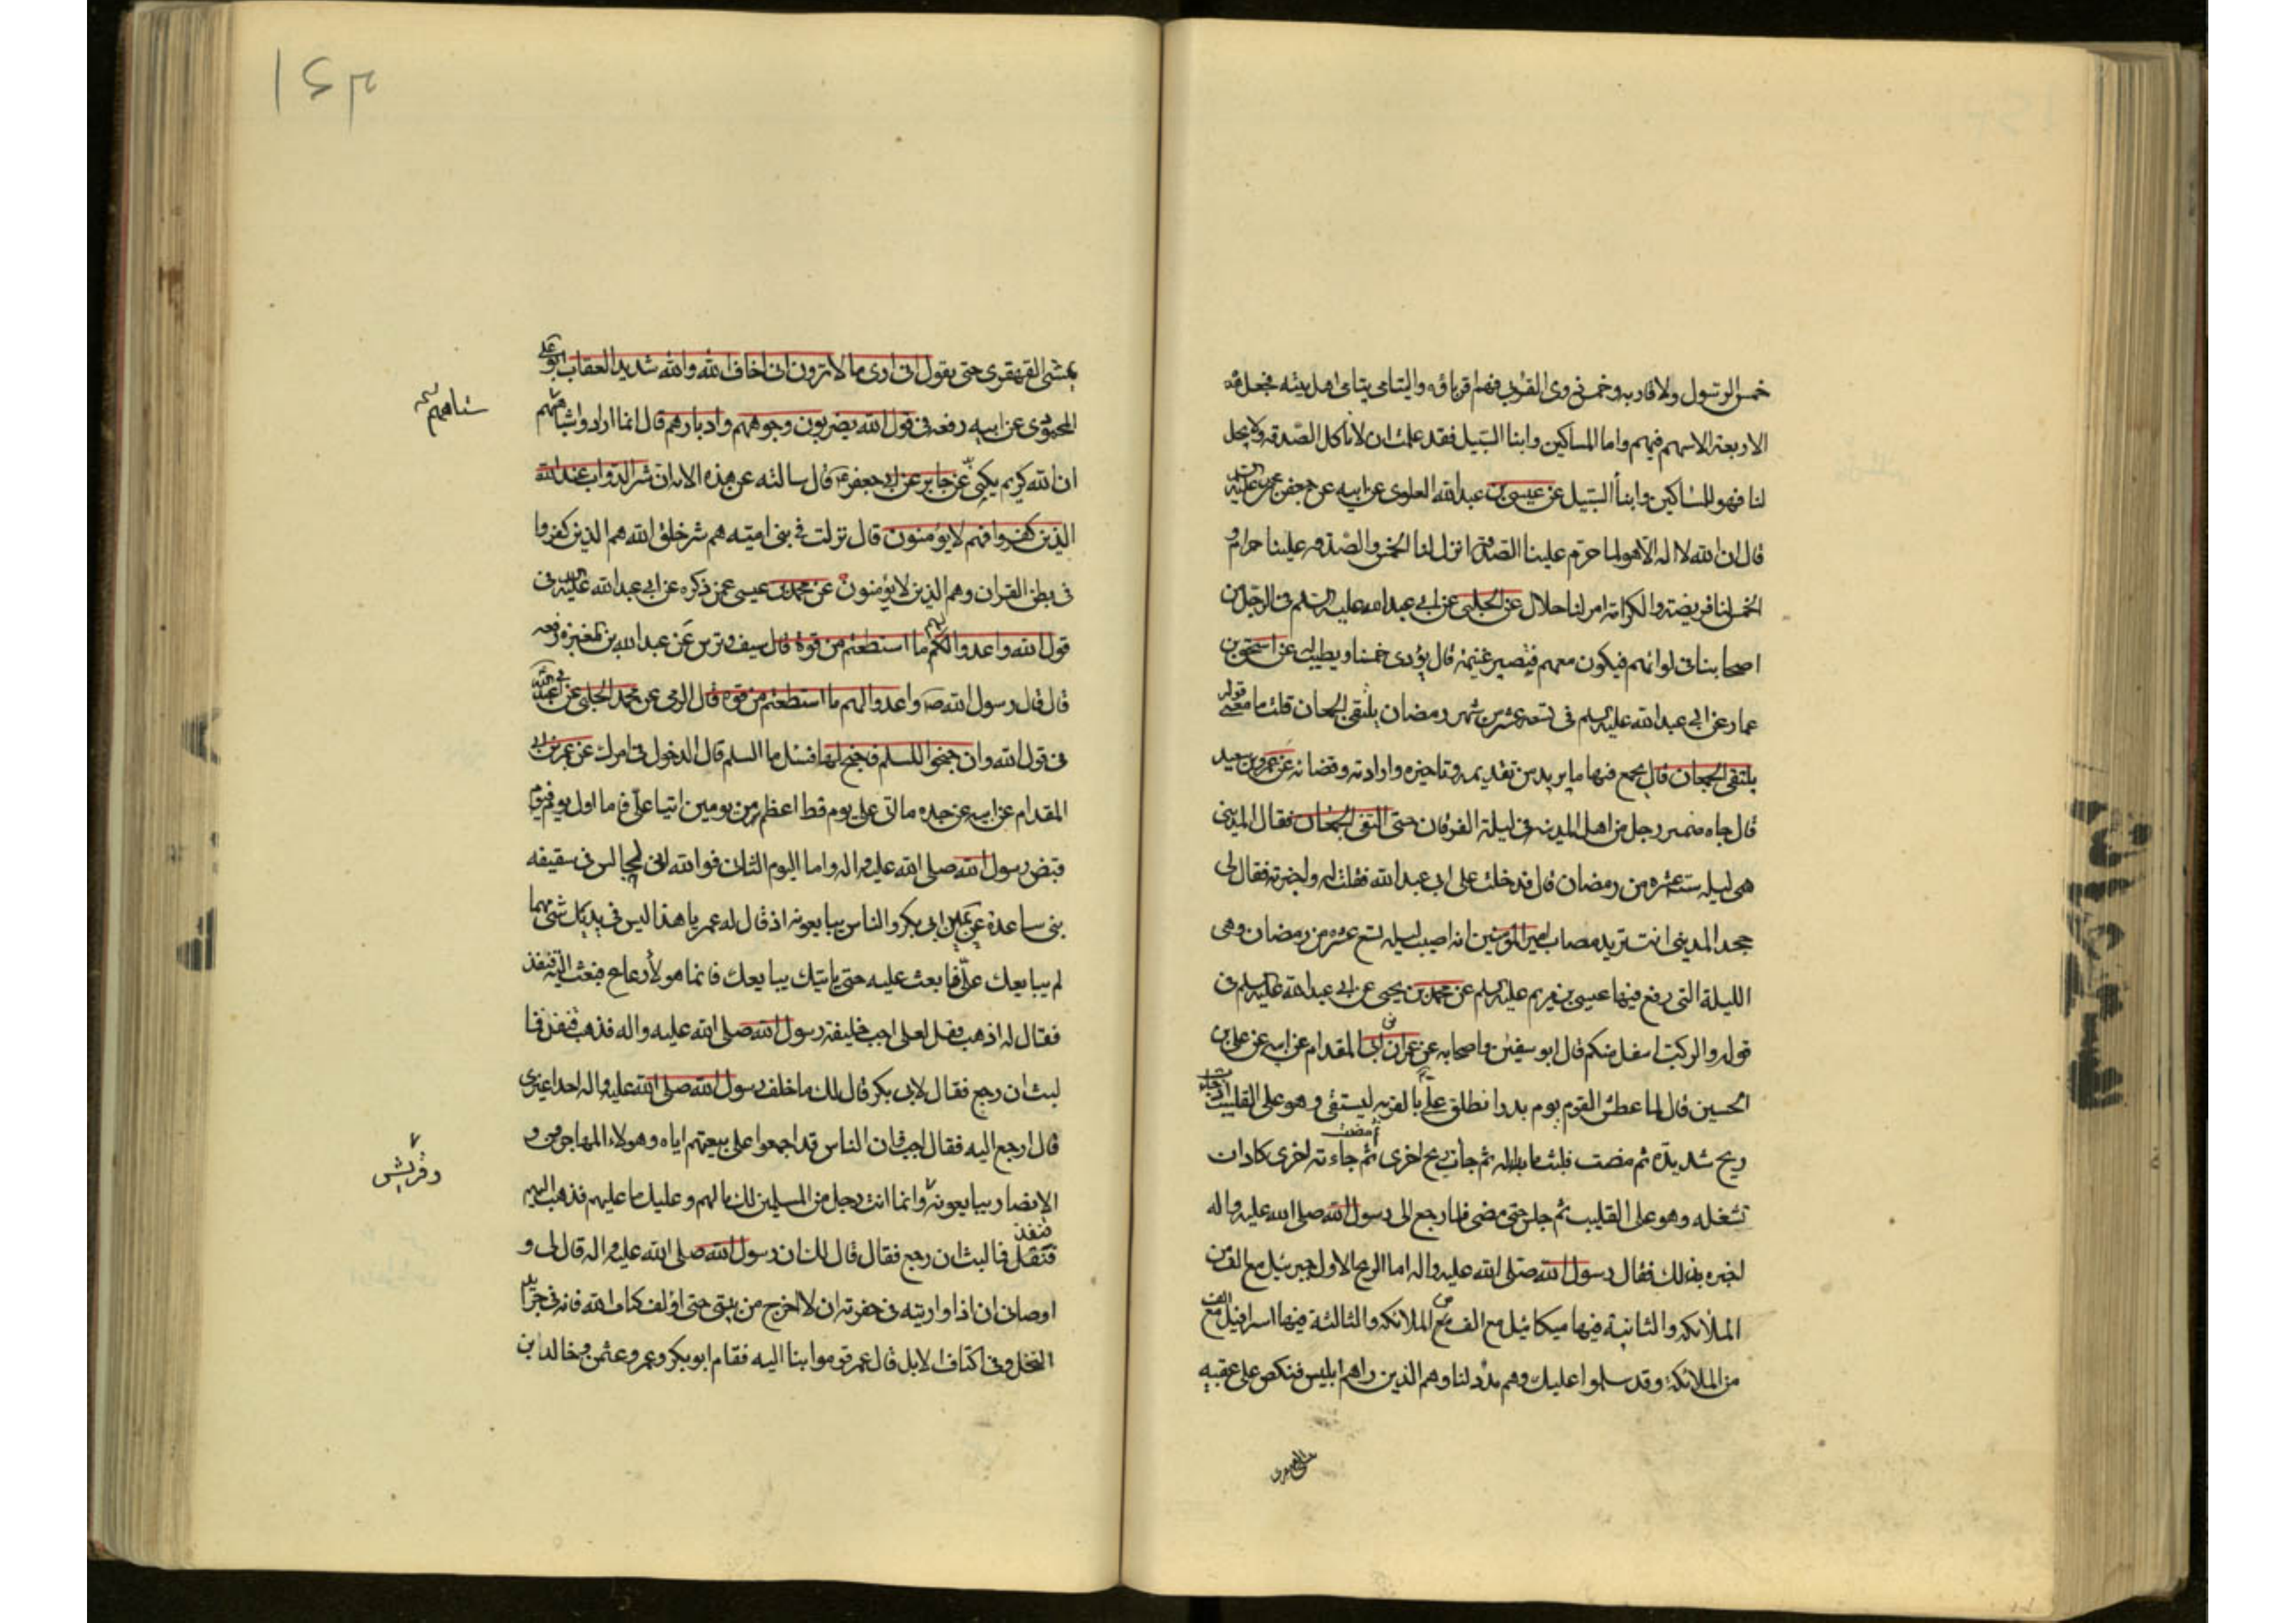 خمس الرسول ولاقاربه وخمس ذوى القربى فهم اقرباؤه واليتامى يتامى اهل بيته فجعل هذه
الاربعة الاسهم فيهم واما المساكين وابنا السبيل فقد علمت ان لا ناكل الصدقه ولا يحل
لنا فهو للمساكين وابنأ السبيل عن عيسى بن عبدالله العلوى عن ابيه عن جعفر بن محمد عليه السلم
قال ان الله لا اله الا هو لما حرم علينا الصدقة انزل لنا الخمس والصدقه علينا حرام و
الخمس لنا فريضة والكرامة امر لنا حلال عن الحلبى عن ابى عبدالله عليه السلم فى الرجل من
اصحابنا فى لوائهم فيكون معهم فيصير غنيمة قال يؤدى خمسنا ويطيب له عن اسحق بن
عمار عن ابى عبدالله عليه السلم فى تسعة عشر من شهر رمضان يلتقى الجمعان قلت ما معنى قوله
يلتقى الجمعان قال يجمع فيها ما يريد من تقديمه وتاخيره وارادته وقضائه عن عمرو بن سعيد
قال جاه رجل من اهل المدينه فى ليلة الفرقان حتى التقى الجمعان فقال المدينى
هى ليله ستة عشره من رمضان قال فدخلت على ابى عبدالله فقلت له واخبرته فقال لى
جحد المدينى انت تريد مصاب امير المؤمنين انه اصيب ليله تسع عشره من رمضان وهى
الليلة التى رفع فيها عيسى بن مريم عليه السلم عن محمد بن يحيى عن ابى عبدالله عليه السلم فى
قوله والركب اسفل منكم قال ابو سفين واصحابه عن عمران بن ابى المقدام عن ابيه عن على بن
الحسين قال لما عطش القوم يوم بدر انطلق على بالقربه ليستقى وهو على القليب اذ جاء
ريح شديدة ثم مضت فلبث ما بدا له ثم جأت ريح اخرى ثم مضت ثم جاءته اخرى كاد ان
تشغله وهو على القليب ثم جلس حتى مضى فلما رجع الى رسول الله صلى الله عليه واله
اخبره بذلك فقال رسول الله صلى الله عليه واله اما الريح الاول جبرئيل مع الف من
الملائكه والثانية فيها ميكائيل مع الف من الملائكه والثالثة فيها اسرافيل مع الف
من الملائكة وقد سلموا عليك وهم مدد لنا وهم الذين راهم ابليس فنكص على عقبيه
يمشى القهقرى حتى يقول انى ارى ما لا ترون انى اخاف الله والله شديد العقاب ابو على
المحمودى عن ابيه رفعه فى قول الله يضربون وجوههم وادبارهم قال انما ارادوا استاههم
ستاههم
ان الله كريم يكنى عن جابر عن ابى جعفر قال سالته عن هذه الاية ان شر الدواب عند الله
الذين كفروا فهم لا يؤمنون قال نزلت فى بنى اميته هم شر خلق الله هم الذين كفروا
فى بطن القران وهم الذين لا يؤمنون عن محمد بن عيسى عمن ذكره عن ابى عبدالله عليه السلم فى
قول الله واعدوا لهم ما استطعتم من قوة قال سيف وترس عن عبدالله بن المغيره رفعه
قال قال رسول الله ص واعدوا لهم ما استطعتم من قوه قال الرمى عن محمد الحلبى عن ابى عبدالله
فى قول الله وان جنحوا للسلم فاجنح لها فسئل ما السلم قال الدخول فى امرك عن عمر بن ابى
المقدام عن ابيه عن جده ما اتى على يوم قط اعظم من يومين اتيا على فاما اول يوم فيوم
قبض رسول الله صلى الله عليه واله واما اليوم الثانى فوالله انى لجالس فى سقيفه
بنى ساعدة عن يمين ابى بكر والناس يبايعونه اذ قال له عمر يا هذا ليس فى يديك شئ مهما
لم يبايعك على فابعث عليه حتى ياتيك يبايعك فانما هولأ رعاع فبعث اليه قنفذ
فقال له اذهب فقل لعلى اجب خليفة رسول الله صلى الله عليه واله فذهب قنفذ فما
لبث ان رجع فقال لابى بكر قال لك ما خلف رسول الله صلى الله عليه واله احدا غيرى
قال ارجع اليه فقال اجب فان الناس قد اجمعوا على بيعتهم اياه وهولاء المهاجرين و
الانصار يبايعونه وانما انت رجل من المسلمين لك ما لهم وعليك ما عليهم فذهب اليه
وقريش
قنفذ فما لبث ان رجع فقال قال لك ان رسول الله صلى الله عليه واله قال لى و
اوصانى ان اذا واريته فى حفرته ان لا اخرج من بيتى حتى اؤلف كتاب الله فانه فى جرائد
النخل وفى اكتاف الابل قال عمر قوموا بنا اليه فقام ابو بكر وعمر وعثمن وخالد بن